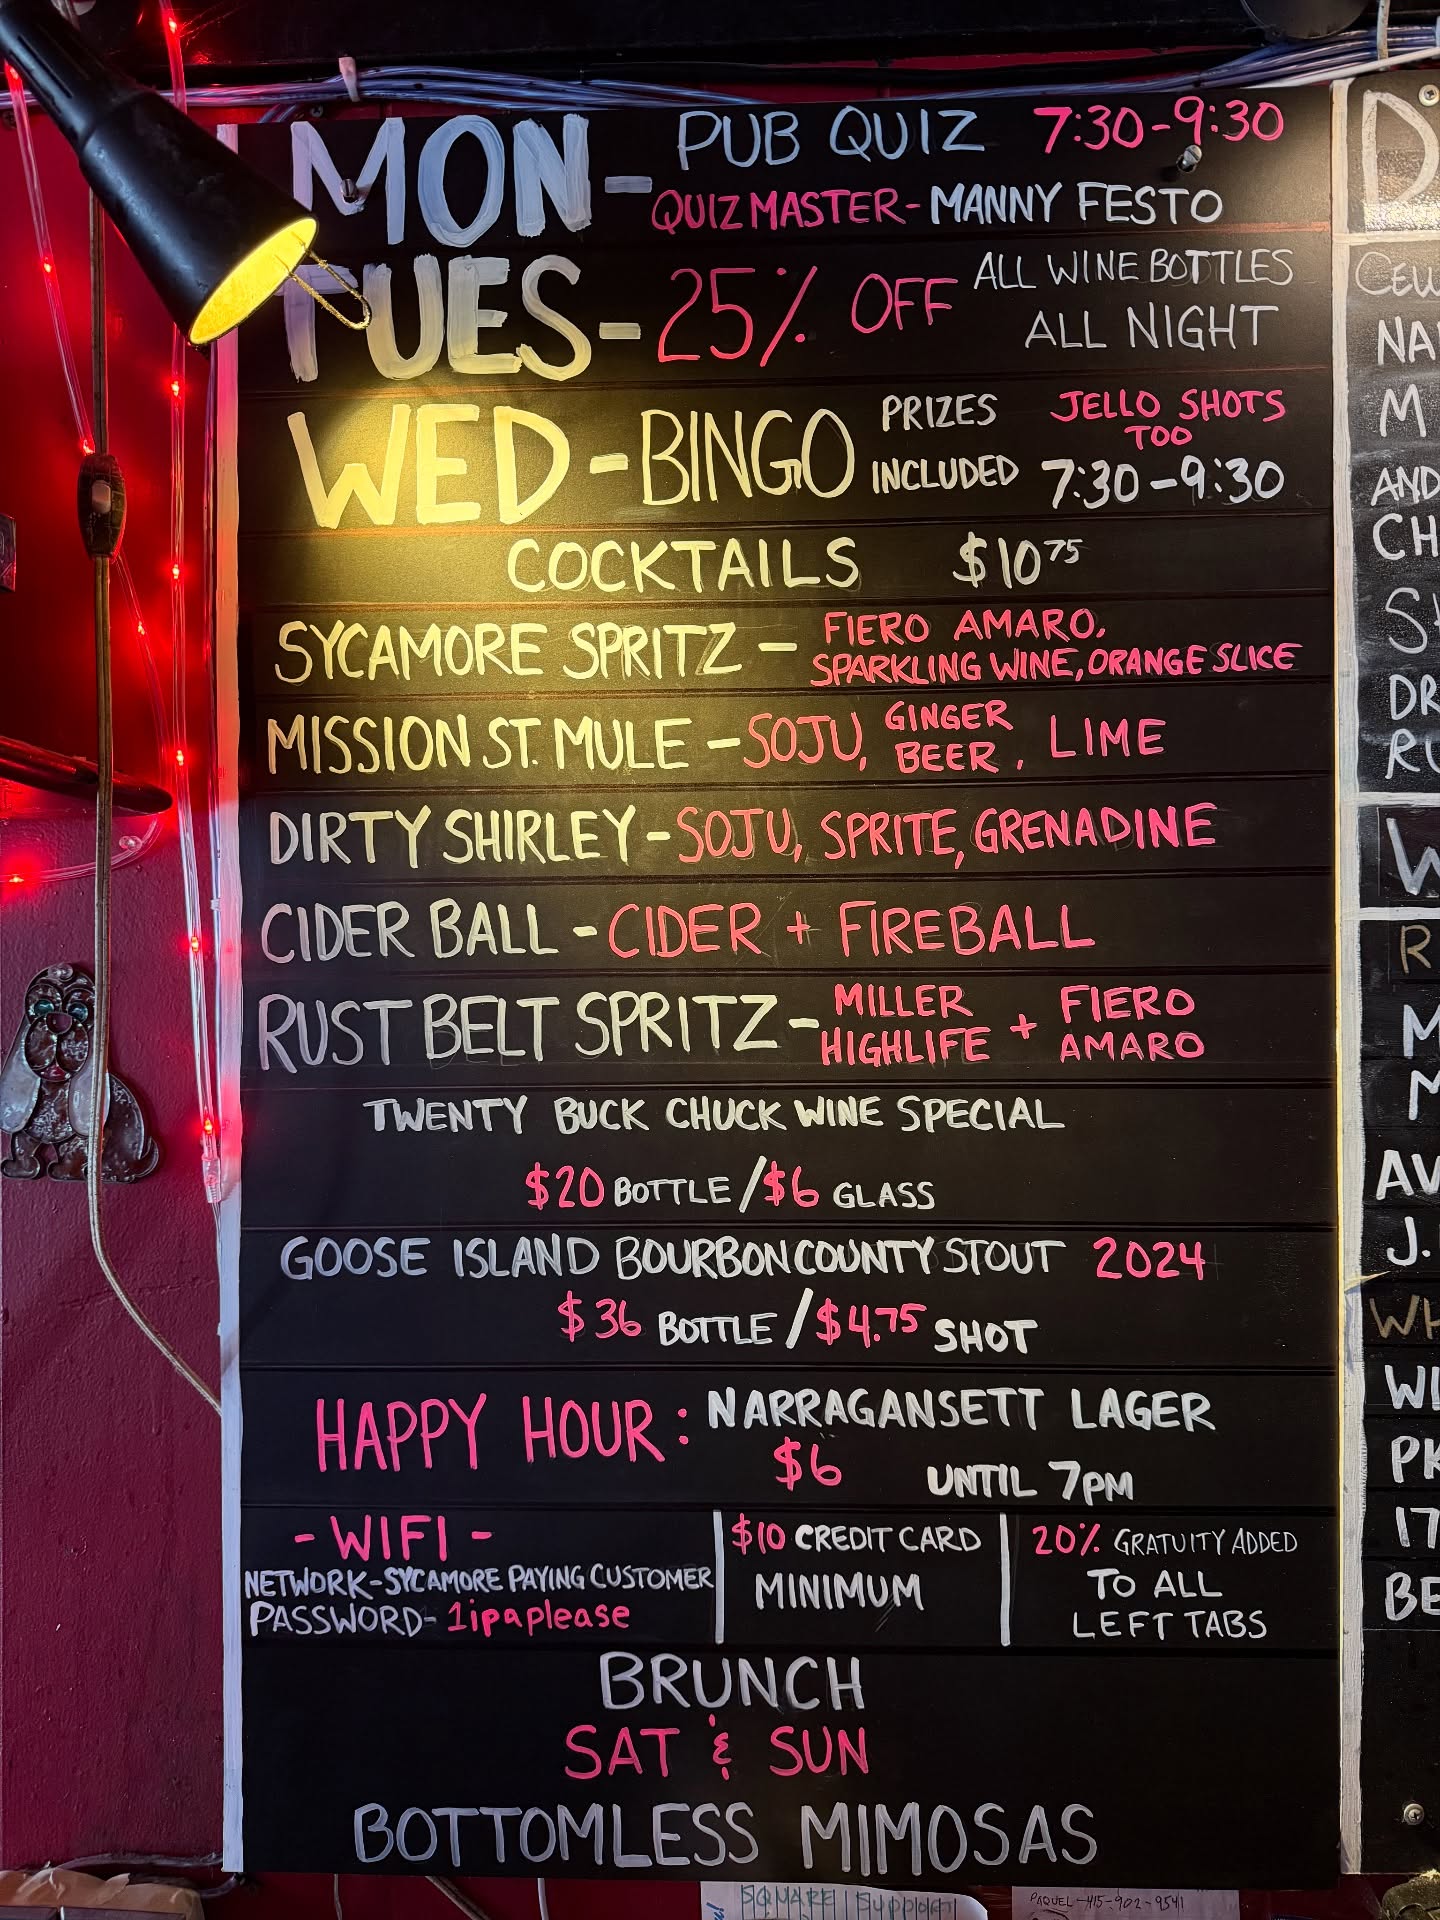 MON - PUB QUIZ 7:30-9:30
QUIZ MASTER- MANNY FESTO
TUES- 25% OFF ALL WINE BOTTLES
ALL NIGHT
WED - BINGO PRIZES INCLUDED JELLO SHOTS TOO
7:30-9:30
COCKTAILS $10 75
SYCAMORE SPRITZ - FIERO AMARO,
SPARKLING WINE, ORANGE SLICE
MISSION ST. MULE - SOJU, GINGER BEER, LIME
DIRTY SHIRLEY - SOJU, SPRITE, GRENADINE
CIDER BALL - CIDER + FIREBALL
RUST BELT SPRITZ - MILLER HIGHLIFE + FIERO AMARO
TWENTY BUCK CHUCK WINE SPECIAL
$20 BOTTLE / $6 GLASS
GOOSE ISLAND BOURBON COUNTY STOUT 2024
$36 BOTTLE / $4.75 SHOT
HAPPY HOUR: NARRAGANSETT LAGER
$6 UNTIL 7PM
- WIFI -
NETWORK-SYCAMORE PAYING CUSTOMER
PASSWORD- 1ipaplease
$10 CREDIT CARD
MINIMUM
20% GRATUITY ADDED
TO ALL
LEFT TABS
BRUNCH
SAT & SUN
BOTTOMLESS MIMOSAS
D
CEW
NA
M
AND
CH
S
DR
RU
W
R
M
M
AV
J.
WH
WI
PK
17
BE
SQUARE Support
RAQUEL-415-902-9541